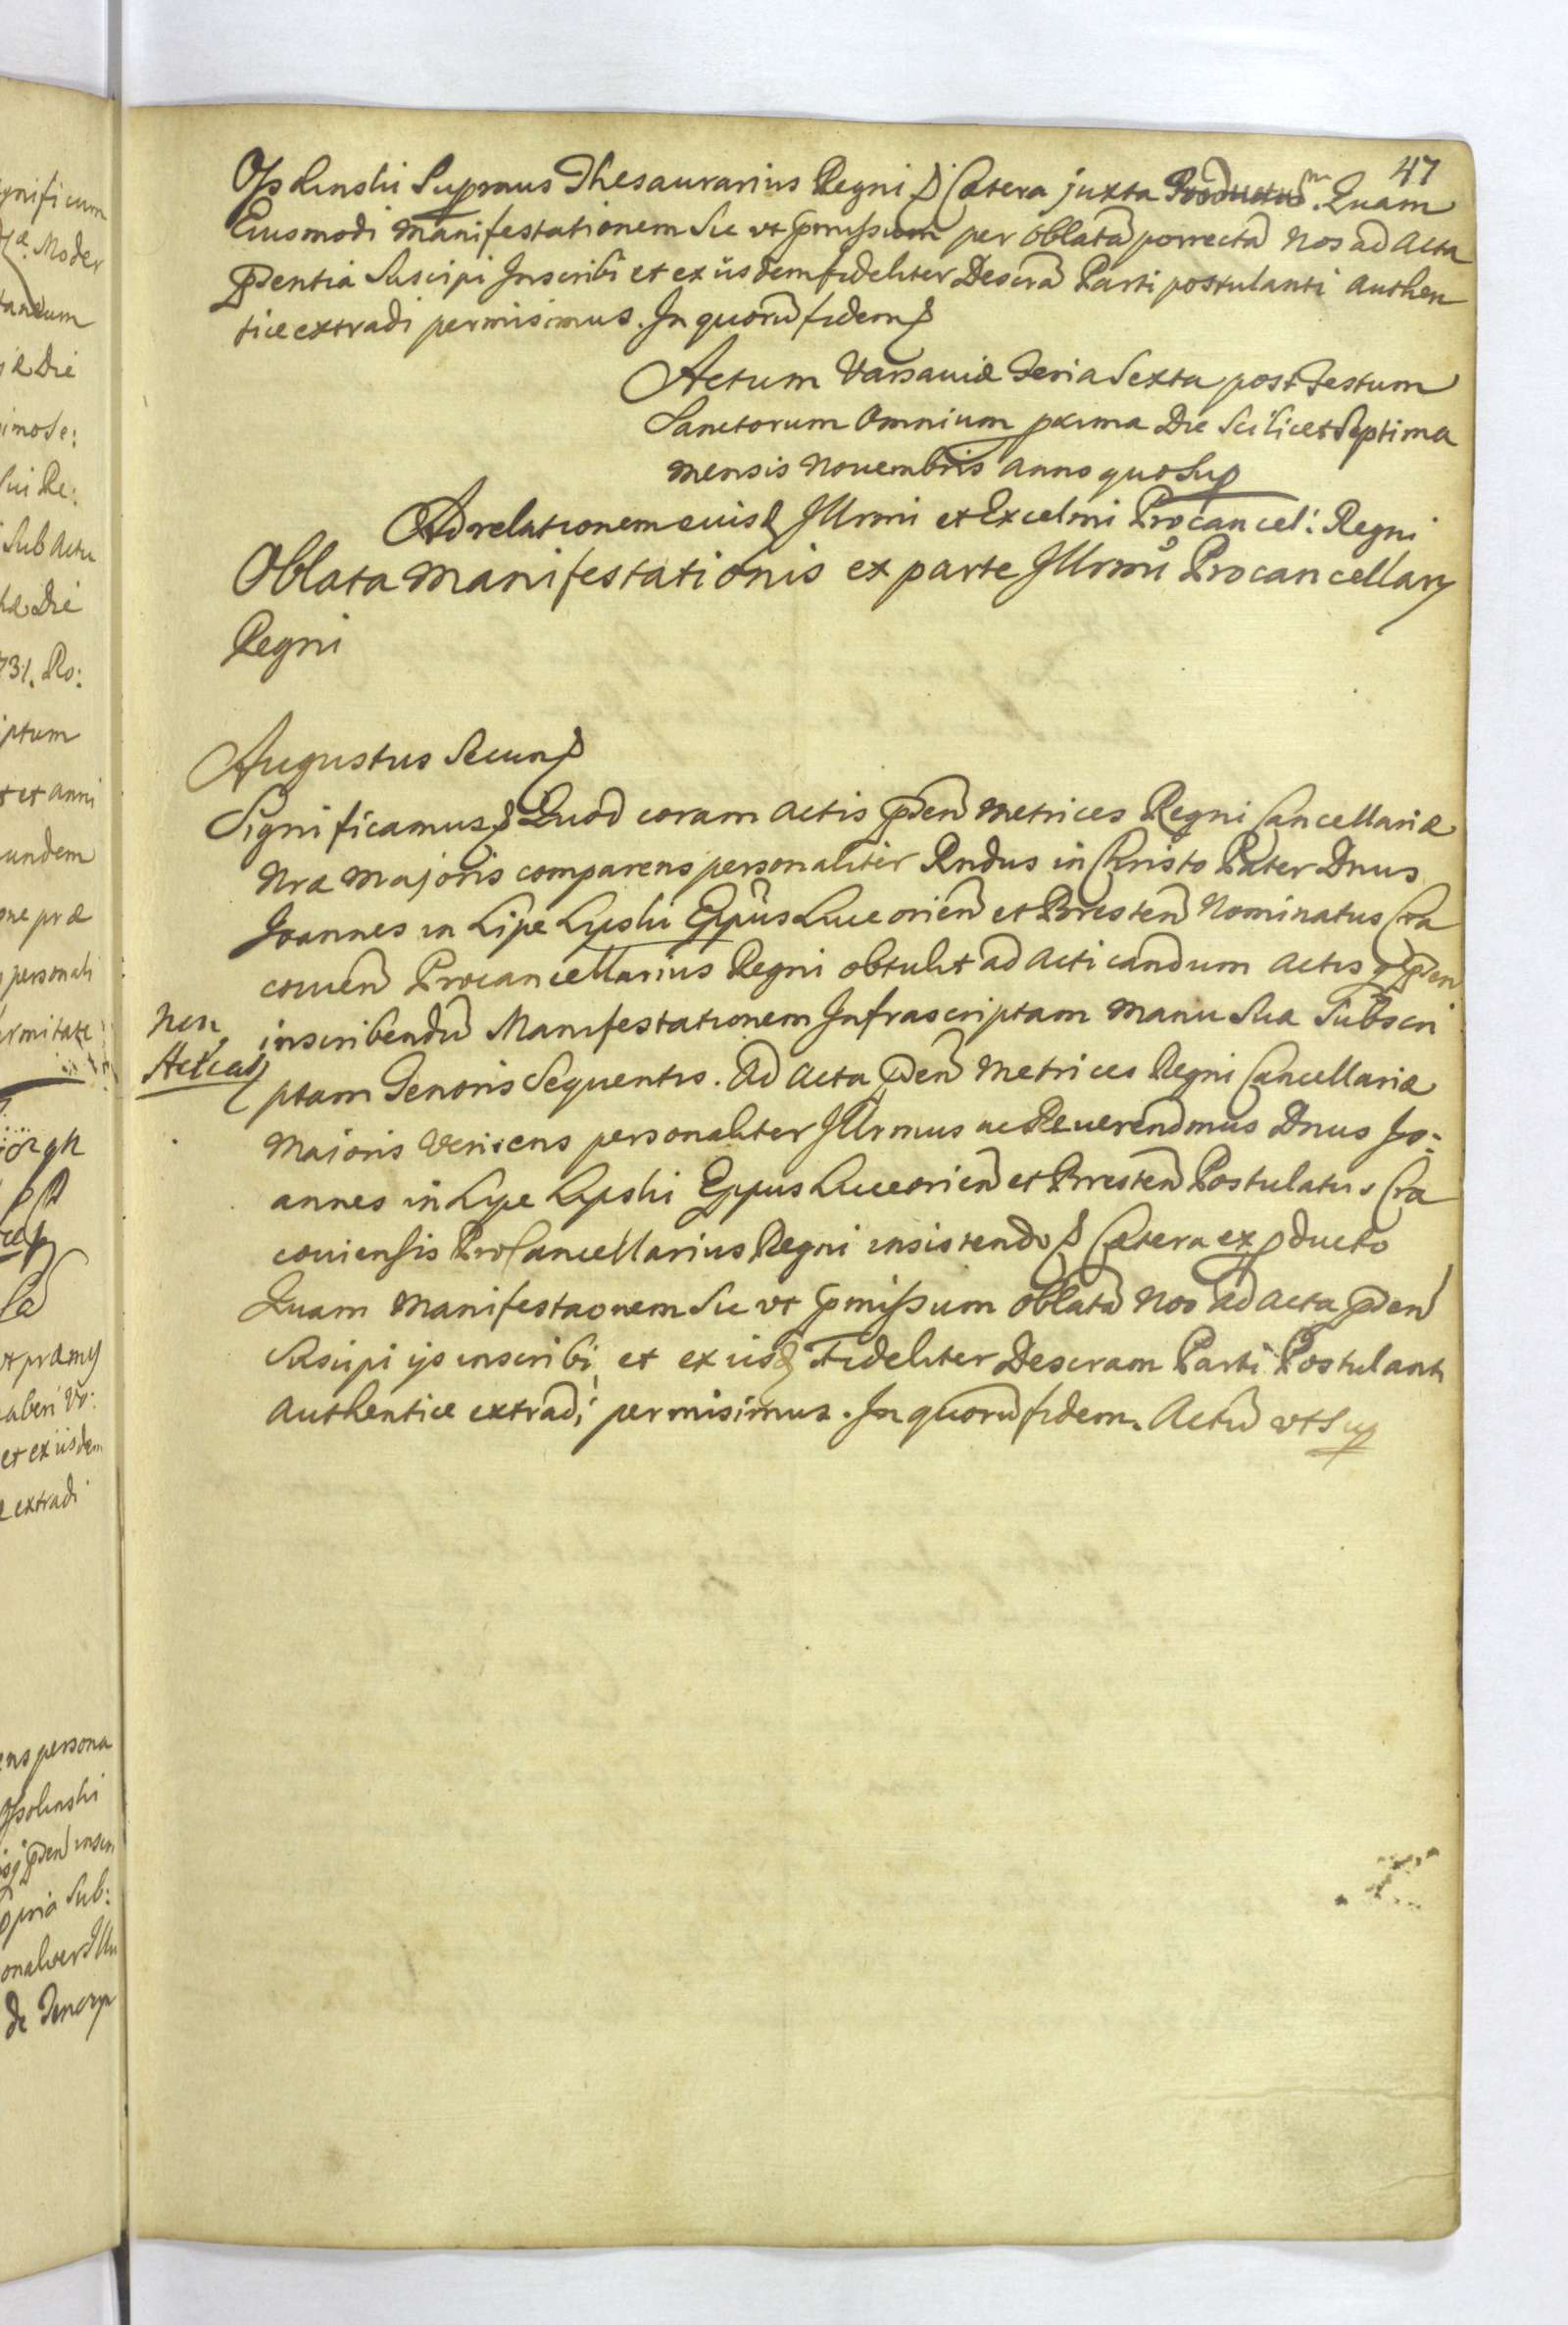 47
Ossolinski Supraus Thesaurarius Regni Caetera juxta Productum. Quam
Eiusmodi manifestationem Sic vt pmissum per oblatã porrectã nos ad Acta
pñtia Suscipi Inscribi et ex iisdem fideliter Descrã Parti postulanti Authen
tice extradi permisimus. In quorũ fidem
Actum Varsaviæ Feria Sexta post Festum
Sanctorum Omnium pxima Die Scilicet Septima
mensis Novembris Anno quo Sup
Ad relationem eiusd Illrmi et Excelmi Procancel: Regni
Oblata manifestationis ex parte Illrmi Procancellary
Regni
Augustus Secund
Significamus Quod coram Actis pñden Metrices Regni Cancellariæ
Nræ Majoris comparens personaliter Rndus in Christo Pater Dnus
Joannes in Lipe Lipski Eppus Luceorien et Bresten Nominatus Cra
covien Procancellarius Regni obtulit ad acticandum Actisq pden
inscribendũ Manifestationem Infrascriptam manu Sua Subscri
ptam Tenoris Sequentis. Ad Acta pden Metrices Regni Cancellariæ
Maioris Veniens personaliter Illrmus ac Reverendmus Dnus Jo:
annes in Lype Lypski Eppus Luceorien et Bresten Postulatus Cra
coviensis ProCancellarius Regni insistendo Caetera ex pducto
Quam manifestaonem Sic vt pmissum oblatã nos ad Acta pden
Suscipi ijs inscribi et ex iisd Fideliter Descram Parti Postulanti
Authentice extradi permisimus. In quorũ fidem. Actũ vt Sup
Non
Acticat